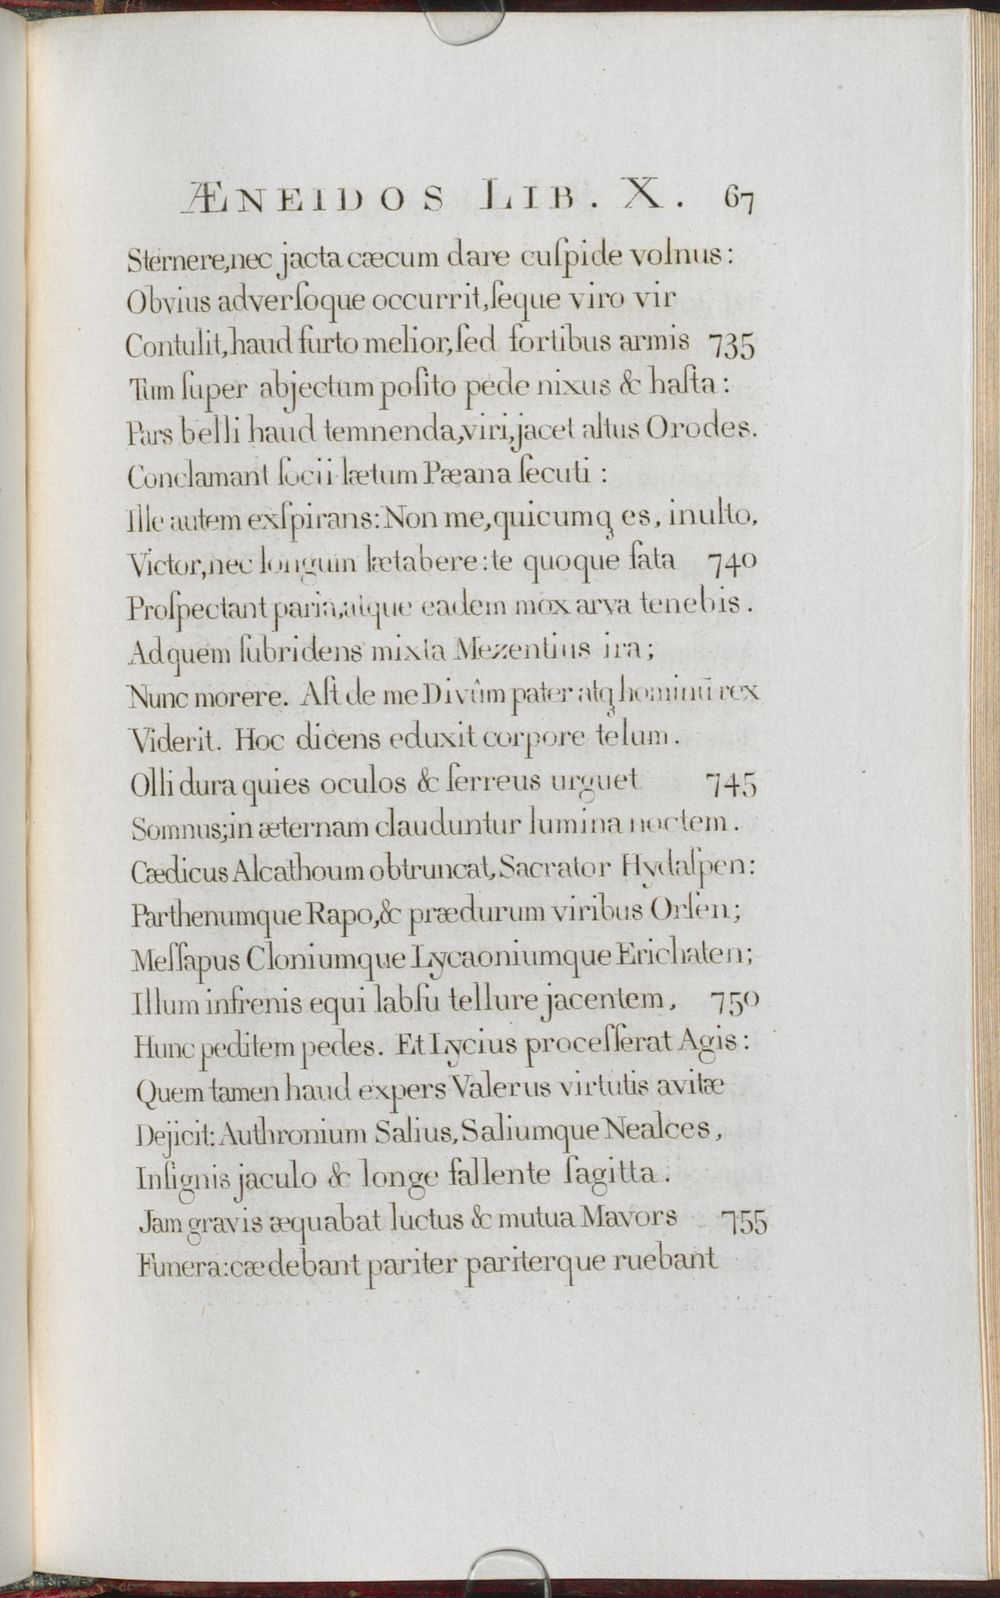 ÆNEIDOS LIB. X. 67
Sternere, nec jacta cæcum dare cuſpide volnus:
Obvius adverſoque occurrit, ſeque viro vir
Contulit, haud furto melior, ſed fortibus armis 735
Tum ſuper abjectum poſito pede nixus & haſta:
Pars belli haud temnenda, viri, jacet altus Orodes.
Conclamant ſocii lætum Pæana ſecuti:
Ille autem exſpirans: Non me, quicumq̧ es, inulto,
Victor, nec longum lætabere: te quoque fata 740
Proſpectant paria, atque eadem mox arva tenebis.
Ad quem ſubridens mixta Mezentius ira;
Nunc morere. Aſt de me Divûm pater atq̧ hominū rex
Viderit. Hoc dicens eduxit corpore telum.
Olli dura quies oculos & ferreus urguet 745
Somnus; in æternam clauduntur lumina noctem.
Cædicus Alcathoum obtruncat, Sacrator Hydaſpen:
Parthenumque Rapo, & prædurum viribus Orſen;
Meſſapus Cloniumque Lycaoniumque Erichaten;
Illum infrenis equi labſu tellure jacentem, 750
Hunc peditem pedes. Et Lycius proceſſerat Agis:
Quem tamen haud expers Valerus virtutis avitæ
Dejicit: Authronium Salius, Saliumque Nealces,
Inſignis jaculo & longe fallente ſagitta.
Jam gravis æquabat luctus & mutua Mavors 755
Funera: cædebant pariter pariterque ruebant